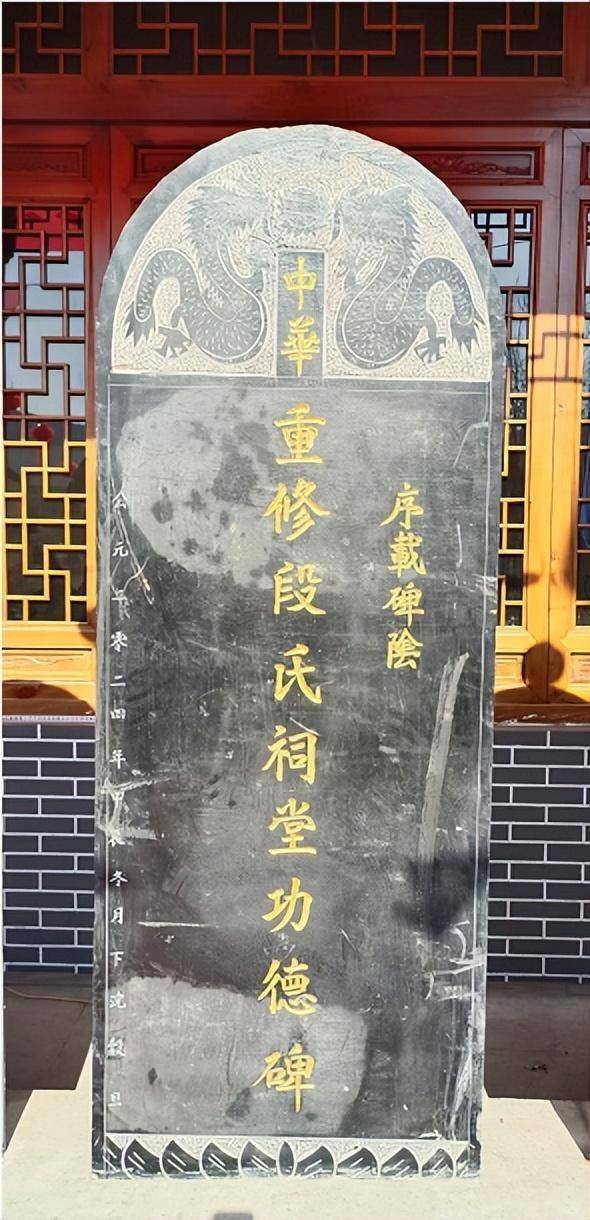 中華
序載碑陰
重修段氏祠堂功德碑
公元二零二四年甲辰冬月下浣穀旦